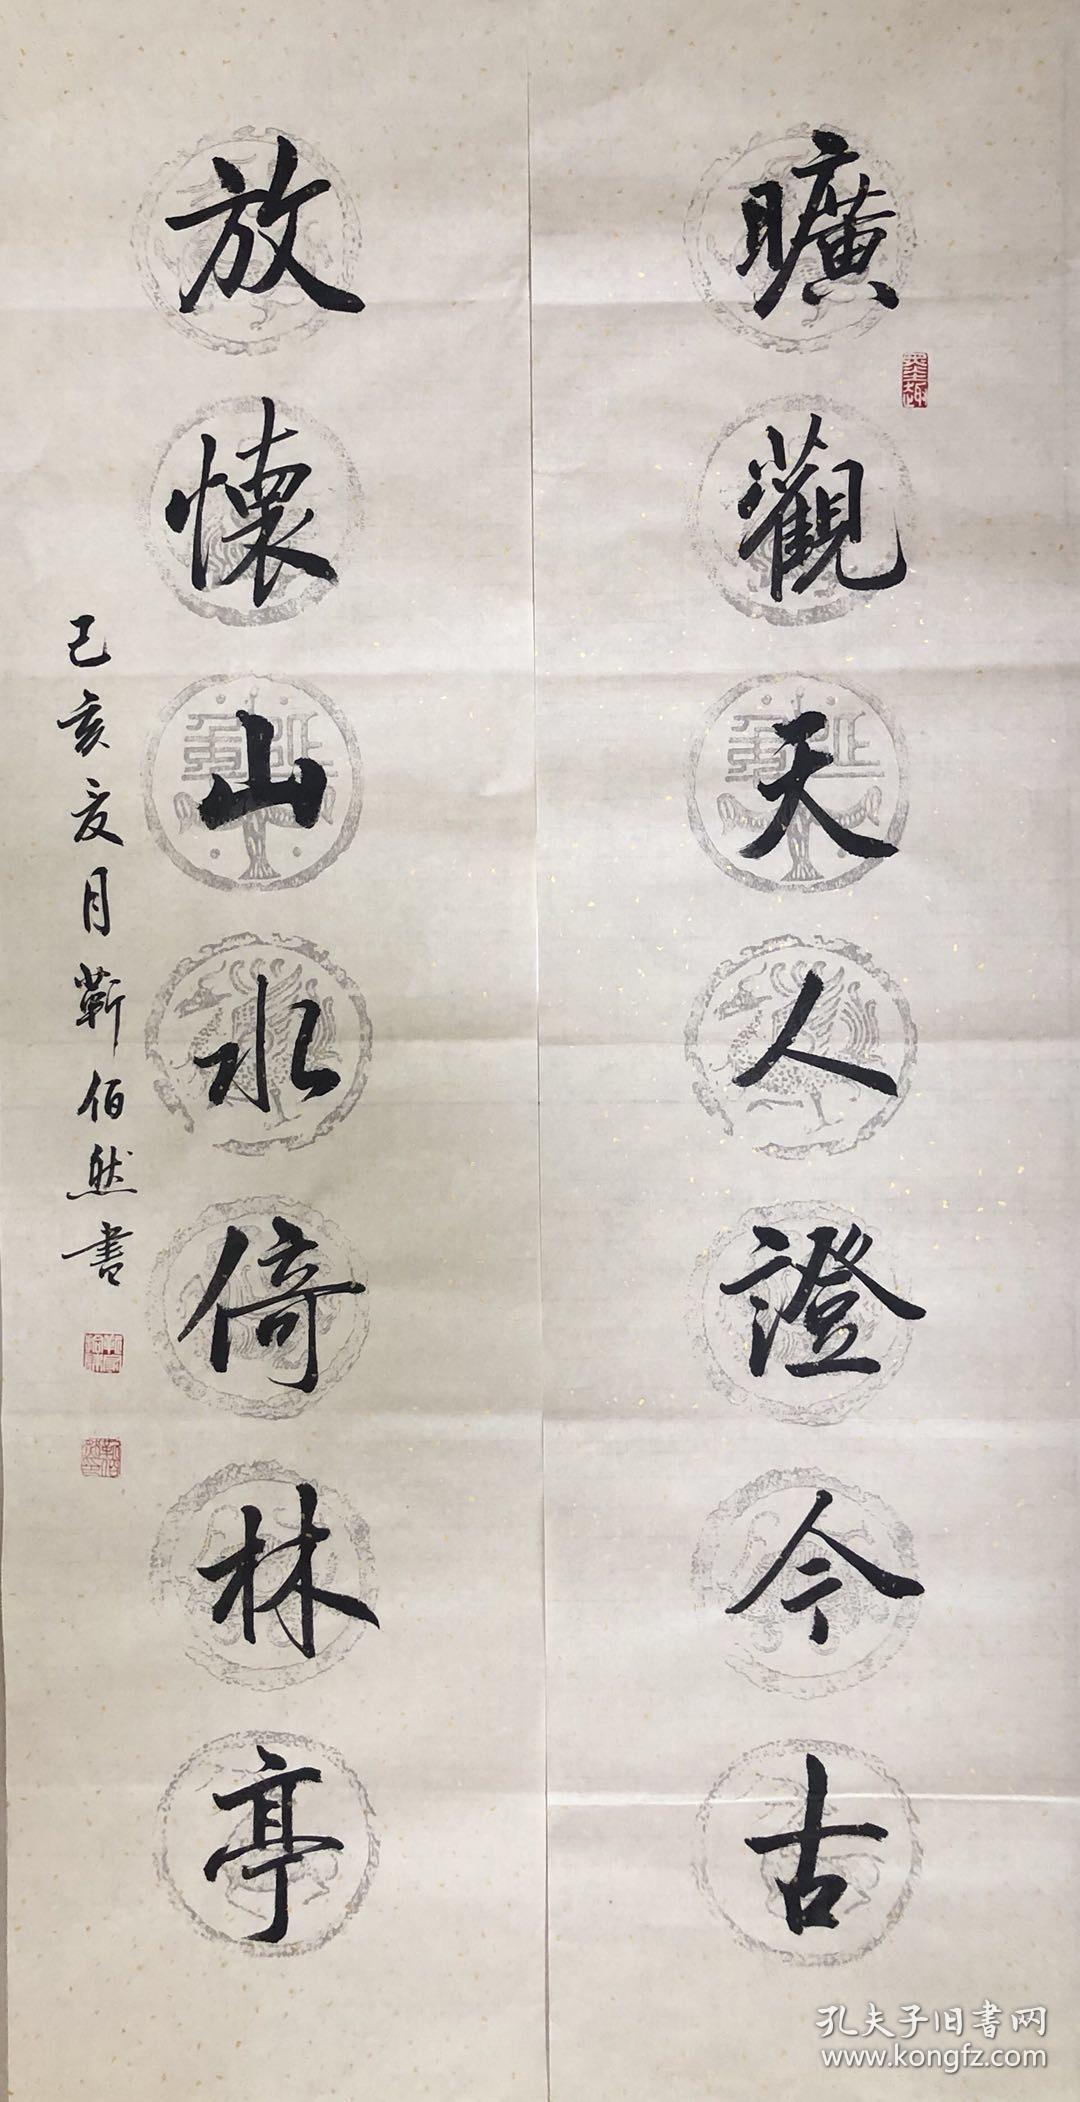 曠觀天人證今古
放懷山水倚林亭
己亥夏月蘄伯然書
孔夫子旧書网
www.kongfz.com